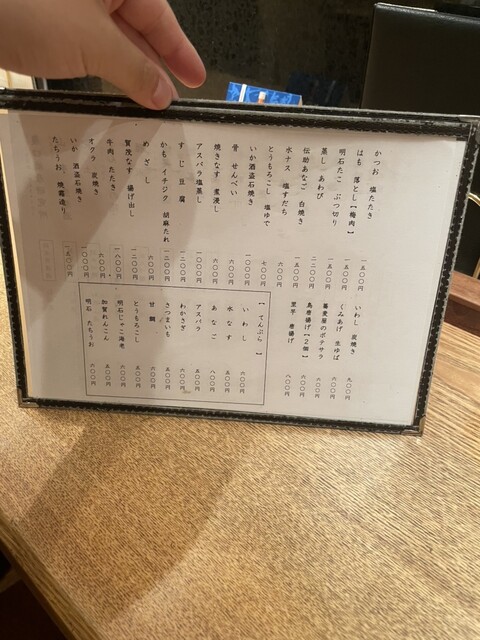 かつお 塩たたき 一五〇〇円
はも 落とし【梅肉】 一五〇〇円
明石たこ ぶつ切り 一五〇〇円
蒸し あわび 二二〇〇円
伝助あなご 白焼き 二二〇〇円
水ナス 塩すだち 六〇〇円
とうもろこし 塩ゆで 七〇〇円
いか酒盗石焼き 一〇〇〇円
骨 せんべい 六〇〇円
焼きなす 煮浸し 六〇〇円
アスパラ塩蒸し 一〇〇〇円
すじ 豆腐 一二〇〇円
かも イチジク 胡麻たれ 一二〇〇円
めざし 六〇〇円
賀茂なす 揚げ出し 一二〇〇円
牛肉 たたき 一八〇〇円
オクラ 炭焼き 六〇〇円
いか 酒盗石焼き 一〇〇〇円
たちうお 焼霜造り 一五〇〇円
いわし 炭焼き 九〇〇円
くみあげ 生ゆば 六〇〇円
蕎麦屋のポテサラ
鳥唐揚げ【2個】 六〇〇円
里芋 唐揚げ 八〇〇円
【 てんぷら 】
いわし 六〇〇円
水なす 五〇〇円
あなご 八〇〇円
アスパラ 五〇〇円
わかさぎ 六〇〇円
さつまいも 五〇〇円
甘鯛 六〇〇円
とうもろこし 五〇〇円
明石じゃこ海老 六〇〇円
加賀れんこん 五〇〇円
明石 たちうお 六〇〇円